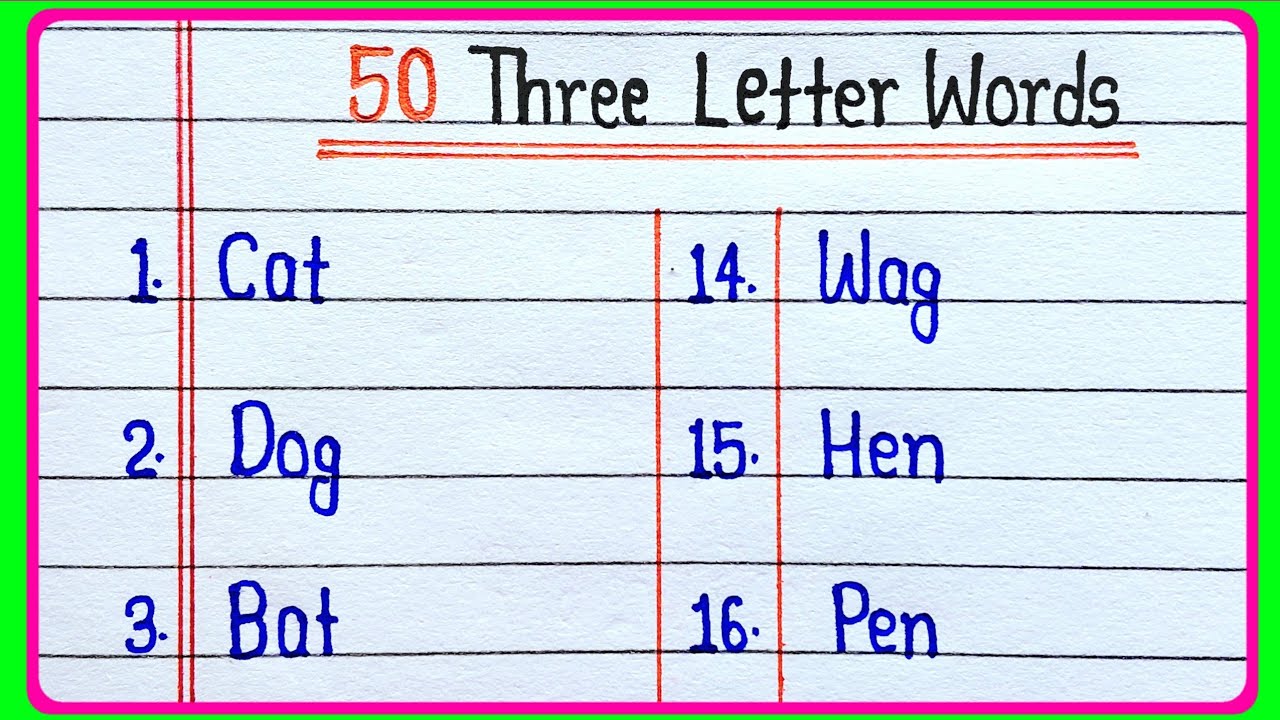 50 Three Letter Words
1. Cat
14. Wag
2. Dog
15. Hen
3. Bat
16. Pen